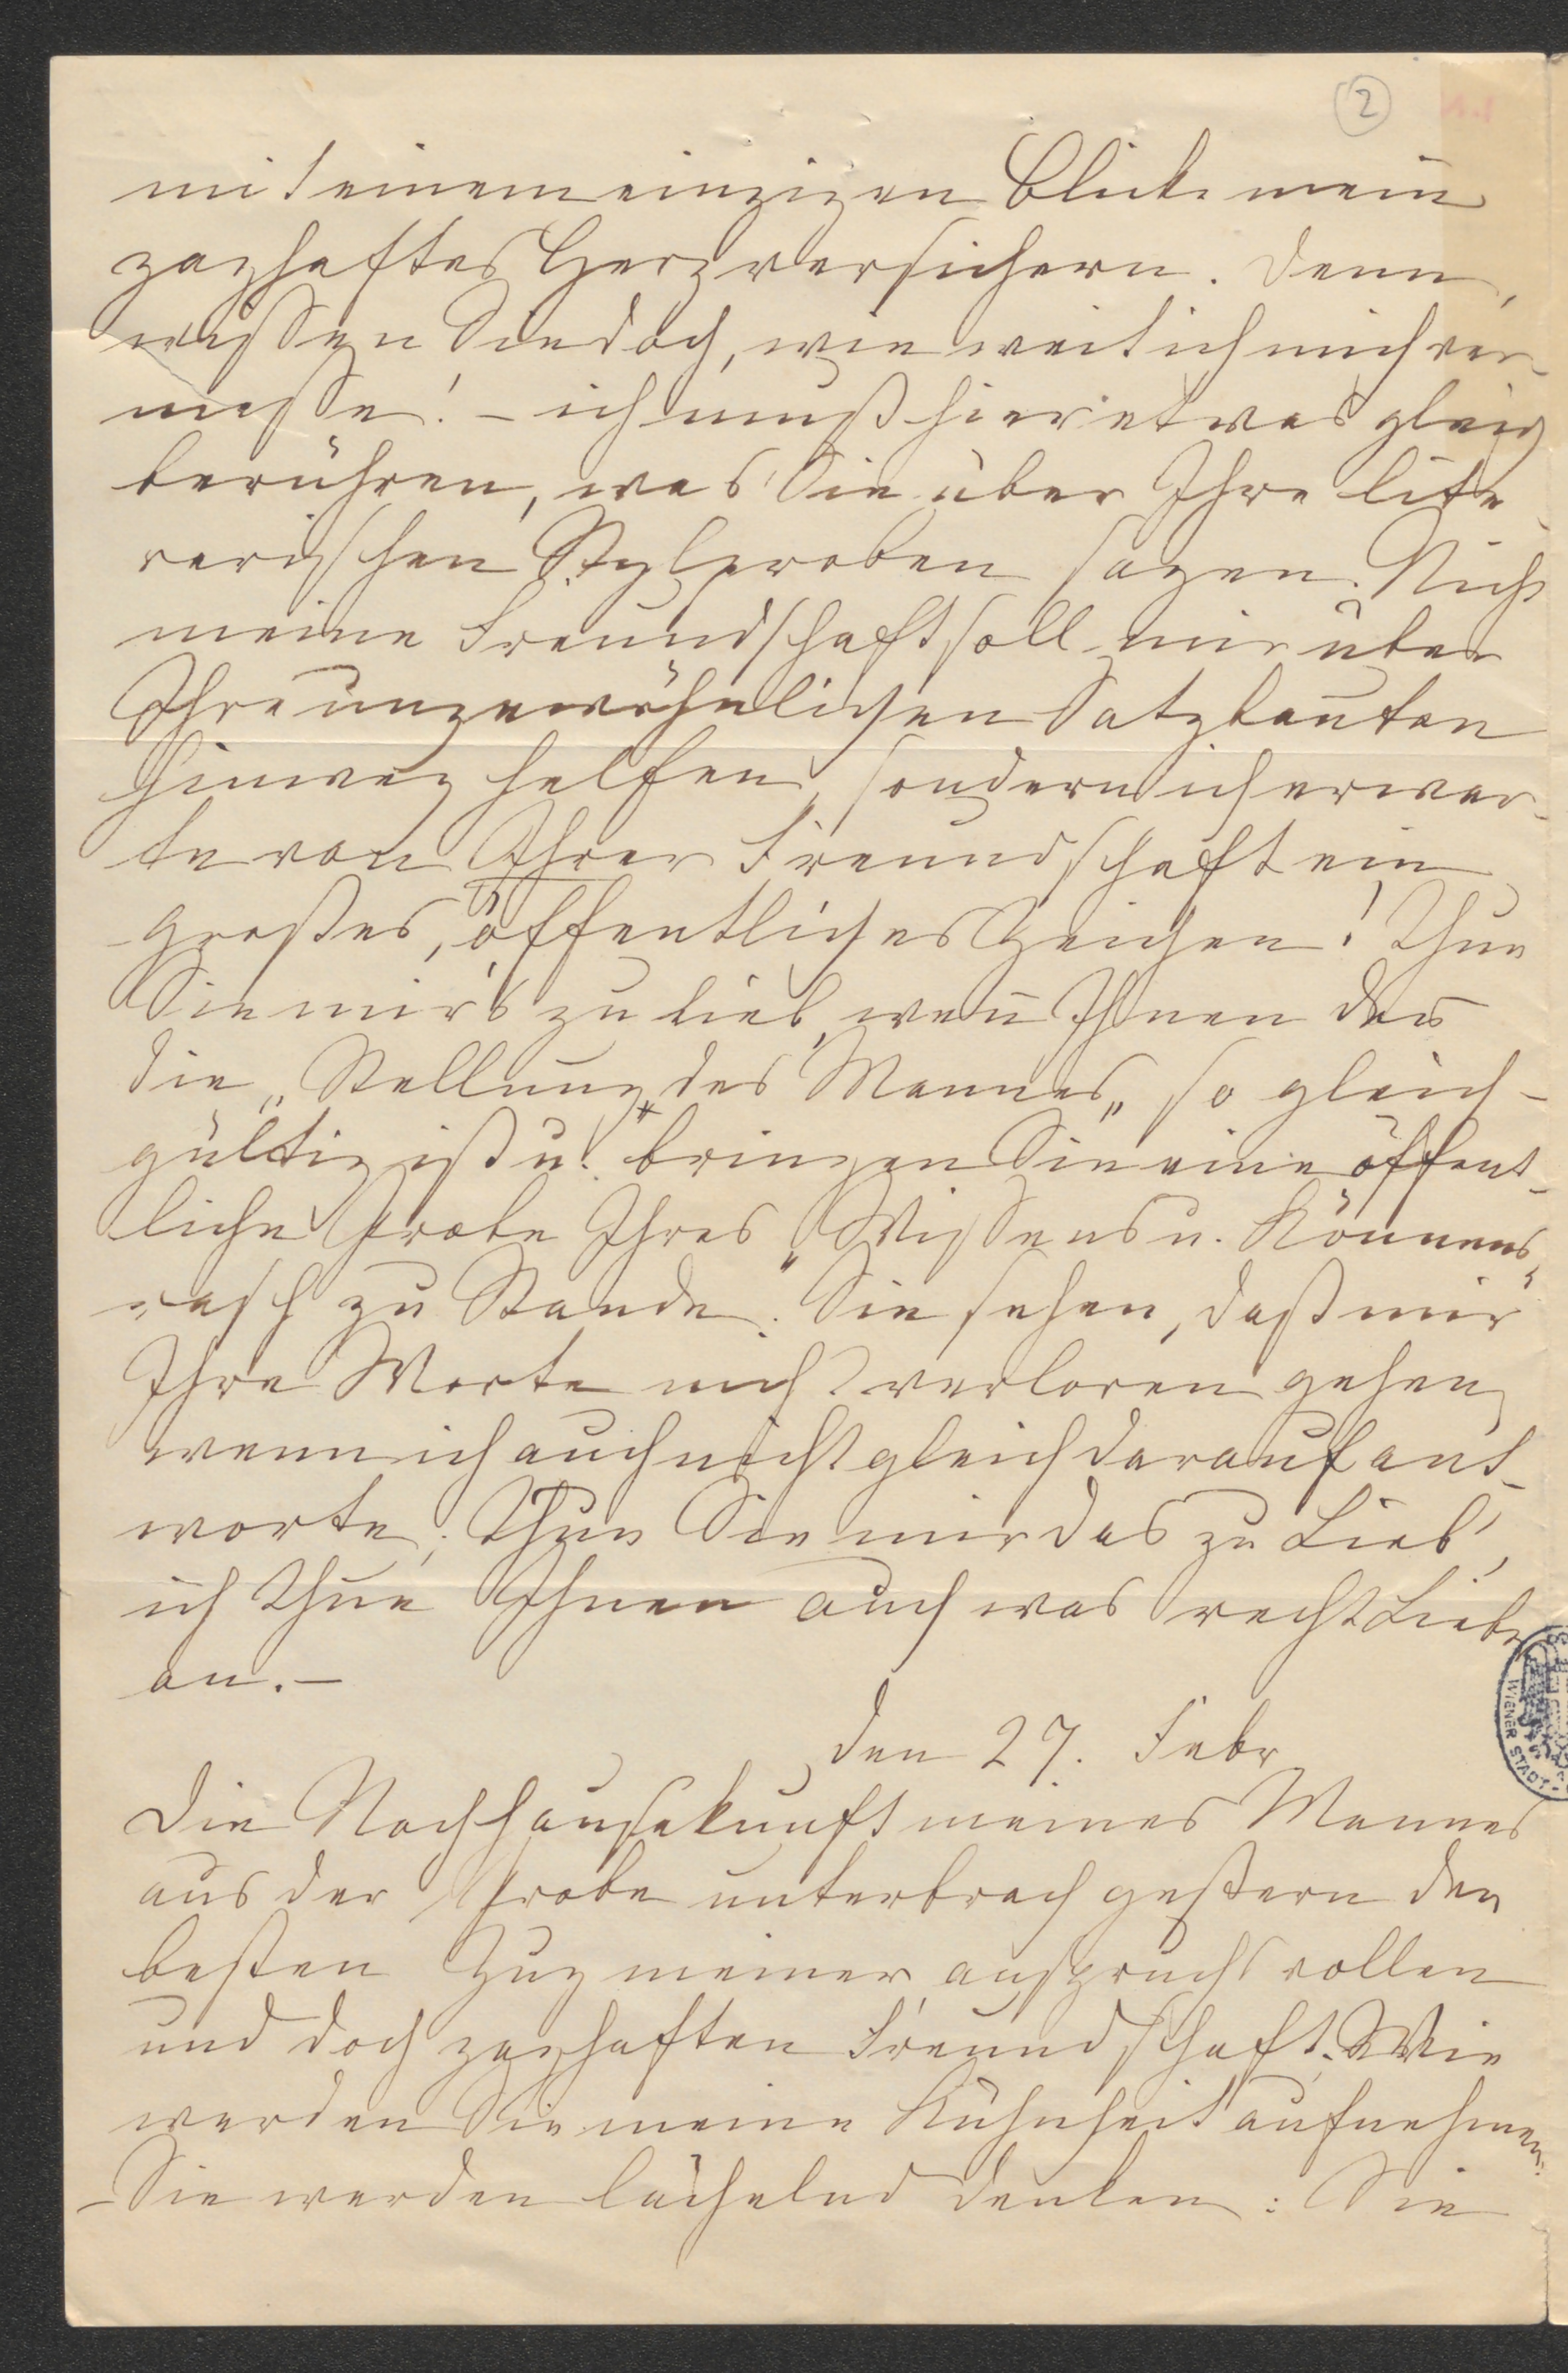 2
mit einem einzigen Blicke mein
zaghaftes Herz versichern. Denn,
wissen Sie doch, wie weit ich mich ver-
messe! – ich muß hier etwas gleich
berühren, was Sie über Ihre lite-
rarischen Stylproben sagen. Nicht
meine Freundschaft soll mir über
Ihre ungewöhnlichen Satzbauten
hinweg helfen, sondern ich erwar-
te von Ihrer Freundschaft ein
großes, öffentliches Zeichen! Thun
Sie mir's zu lieb, wen̄ Ihnen den
die „Stellung des Mannes„ so gleich-
gültig ist u. bringen Sie eine öffent-
liche Probe Ihres „Wissens u. Könnens„
rasch zu Stande. Sie sehen, daß mir
Ihre Worte nicht verloren gehen,
wenn ich auch nicht gleich darauf ant-
worte; Thun Sie mir das zu Lieb',
ich thue Ihnen auch was recht Liebes
an. –
den 27. Febr
Die Nachhausekunft meines Mannes
aus der Probe unterbrach gestern den
besten Zug meiner anspruchsvollen
und doch zaghaften Freundschaft. Wie
werden Sie meine Kühnheit aufnehmen?
– Sie werden lächelnd denken: Sie
WIENER STADT-